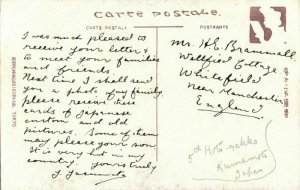 Carte postale.
CARTE POSTALE
POSTKARTE
I was much pleased to
receive your letter &
to meet your families
and friends
Next time I shall send
you a photo of my family.
please receive these
cards of Japanese
custom and old
pictures. Some of them
may please your son.
It is very hot in my
country. yours truly
Mr. H.E. Bramwall
Wellfield Cottage
Whitefield
near Manchester
England.
5th Koto-gakko
Kumamoto
Japan